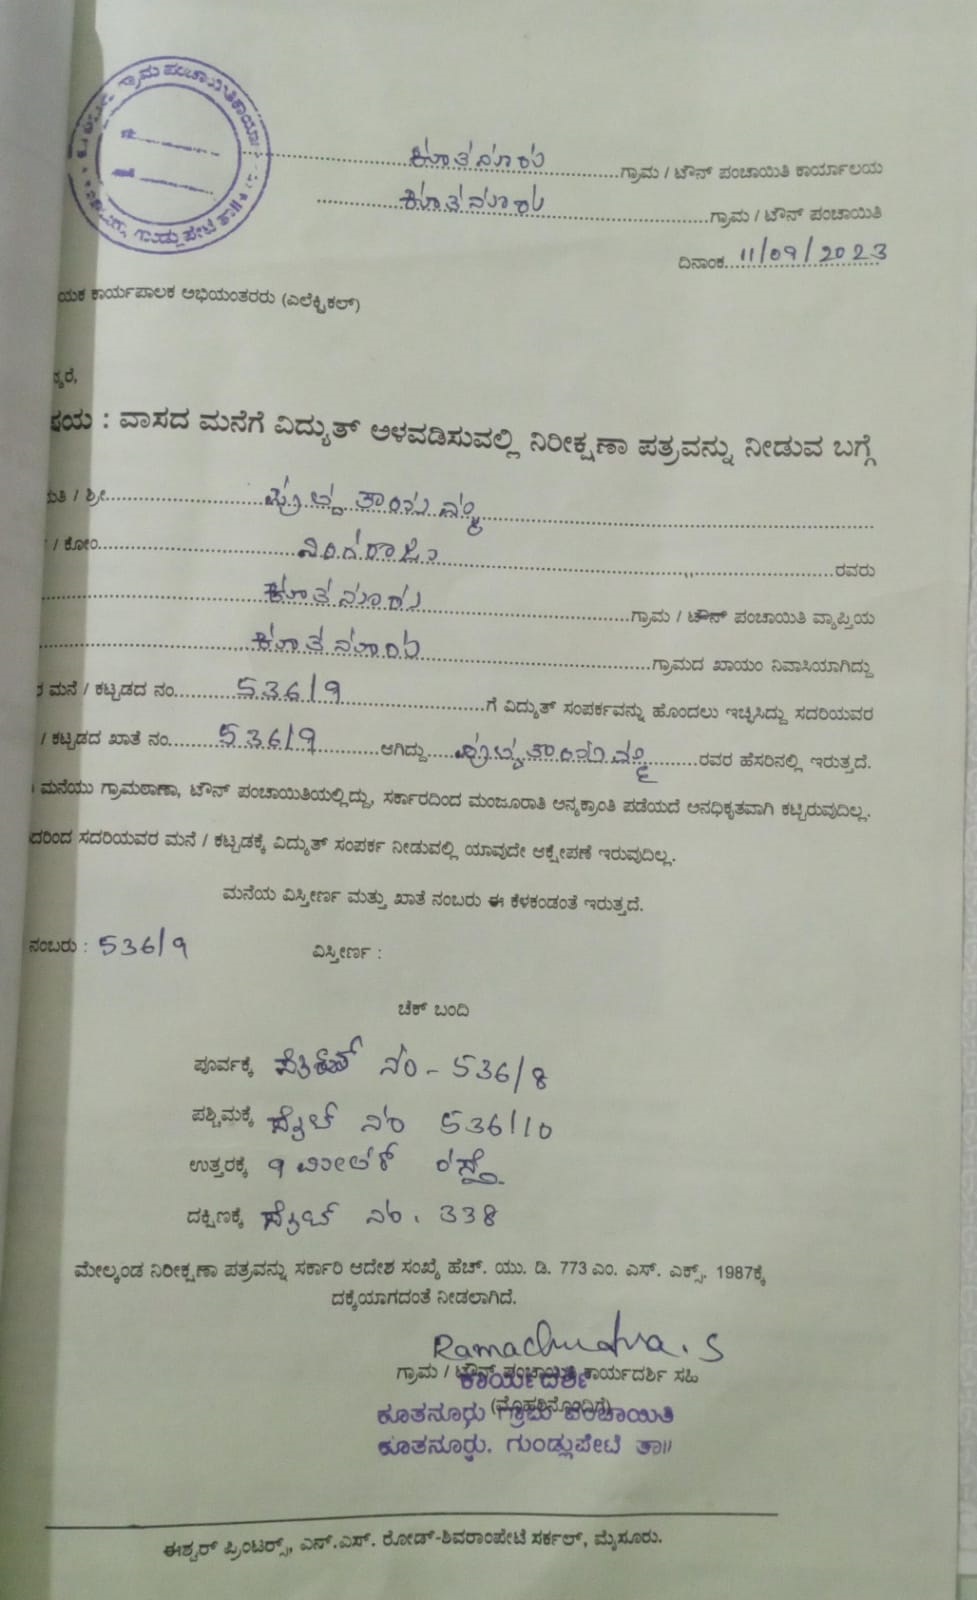 ಗ್ರಾಮ ಪಂಚಾಯಿತಿ ಕಾರ್ಯಾ
ಗುಂಡ್ಲುಪೇಟೆ ತಾ॥
ಕೂತನೂರು ಗ್ರಾಮ / ಟೌನ್ ಪಂಚಾಯಿತಿ ಕಾರ್ಯಾಲಯ
ಕೂತನೂರು ಗ್ರಾಮ / ಟೌನ್ ಪಂಚಾಯಿತಿ
ದಿನಾಂಕ 11/09/2023
ಯಕ ಕಾರ್ಯಪಾಲಕ ಅಭಿಯಂತರರು (ಎಲೆಕ್ಟ್ರಿಕಲ್)
ರೆ,
ಷಯ : ವಾಸದ ಮನೆಗೆ ವಿದ್ಯುತ್ ಅಳವಡಿಸುವಲ್ಲಿ ನಿರೀಕ್ಷಣಾ ಪತ್ರವನ್ನು ನೀಡುವ ಬಗ್ಗೆ
ಮತಿ / ಶ್ರೀ ಪುಟ್ಟತಾಯಮ್ಮ
/ ಕೋಂ ನಿಂಗರಾಜು ರವರು
ಕೂತನೂರು ಗ್ರಾಮ / ಟೌನ್ ಪಂಚಾಯಿತಿ ವ್ಯಾಪ್ತಿಯ
ಕೂತನೂರು ಗ್ರಾಮದ ಖಾಯಂ ನಿವಾಸಿಯಾಗಿದ್ದು
ರ ಮನೆ / ಕಟ್ಟಡದ ನಂ 536/9 ಗೆ ವಿದ್ಯುತ್ ಸಂಪರ್ಕವನ್ನು ಹೊಂದಲು ಇಚ್ಛಿಸಿದ್ದು ಸದರಿಯವರ
/ ಕಟ್ಟಡದ ಖಾತೆ ನಂ 536/9 ಆಗಿದ್ದು ಪುಟ್ಟತಾಯಮ್ಮ ರವರ ಹೆಸರಿನಲ್ಲಿ ಇರುತ್ತದೆ.
ಮನೆಯು ಗ್ರಾಮಠಾಣಾ, ಟೌನ್ ಪಂಚಾಯಿತಿಯಲ್ಲಿದ್ದು, ಸರ್ಕಾರದಿಂದ ಮಂಜೂರಾತಿ ಅನ್ಯಕ್ರಾಂತಿ ಪಡೆಯದೆ ಅನಧಿಕೃತವಾಗಿ ಕಟ್ಟಿರುವುದಿಲ್ಲ.
ದರಿಂದ ಸದರಿಯವರ ಮನೆ / ಕಟ್ಟಡಕ್ಕೆ ವಿದ್ಯುತ್ ಸಂಪರ್ಕ ನೀಡುವಲ್ಲಿ ಯಾವುದೇ ಆಕ್ಷೇಪಣೆ ಇರುವುದಿಲ್ಲ.
ಮನೆಯ ವಿಸ್ತೀರ್ಣ ಮತ್ತು ಖಾತೆ ನಂಬರು ಈ ಕೆಳಕಂಡಂತೆ ಇರುತ್ತದೆ.
ನಂಬರು : 536/9 ವಿಸ್ತೀರ್ಣ :
ಚೆಕ್ ಬಂದಿ
ಪೂರ್ವಕ್ಕೆ ಸೈಟ್ ನಂ - 536/8
ಪಶ್ಚಿಮಕ್ಕೆ ಸೈಟ್ ನಂ 536/10
ಉತ್ತರಕ್ಕೆ 9 ಮೀಟರ್ ರಸ್ತೆ
ದಕ್ಷಿಣಕ್ಕೆ ಸೈಟ್ ನಂ. 338
ಮೇಲ್ಕಂಡ ನಿರೀಕ್ಷಣಾ ಪತ್ರವನ್ನು ಸರ್ಕಾರಿ ಆದೇಶ ಸಂಖ್ಯೆ ಹೆಚ್. ಯು. ಡಿ. 773 ಎಂ. ಎಸ್. ಎಕ್ಸ್. 1987ಕ್ಕೆ
ದಕ್ಕೆಯಾಗದಂತೆ ನೀಡಲಾಗಿದೆ.
Ramachandra. S
ಗ್ರಾಮ / ಟೌನ್ ಪಂಚಾಯಿತಿ ಕಾರ್ಯದರ್ಶಿ ಸಹಿ
ಕಾರ್ಯದರ್ಶಿ
(ಮೊಹರಿನೊಂದಿಗೆ)
ಕೂತನೂರು ಗ್ರಾಮ ಪಂಚಾಯಿತಿ
ಕೂತನೂರು. ಗುಂಡ್ಲುಪೇಟೆ ತಾ॥
ಈಶ್ವರ್ ಪ್ರಿಂಟರ್ಸ್, ಎನ್.ಎಸ್. ರೋಡ್-ಶಿವರಾಂಪೇಟೆ ಸರ್ಕಲ್, ಮೈಸೂರು.